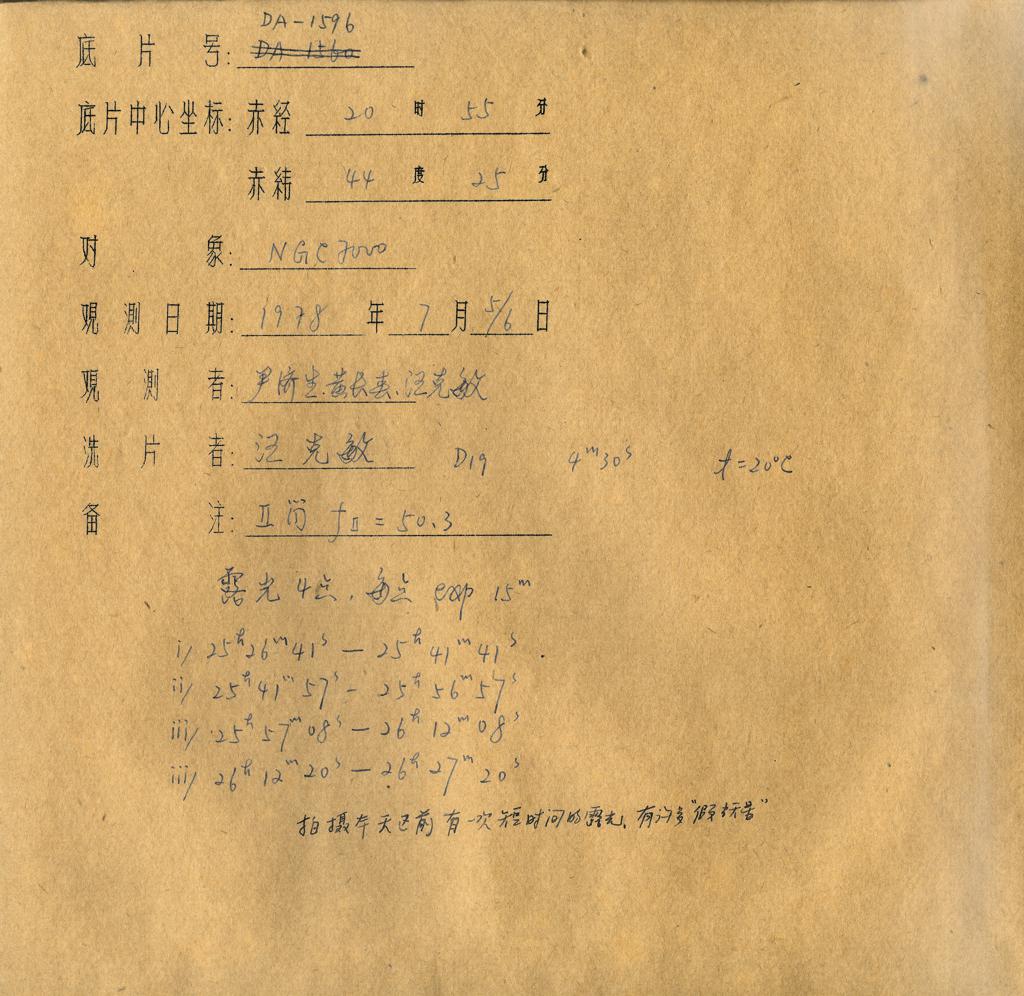 DA-1596
底片号: DA-1560
底片中心坐标: 赤经 20 时 55 分
赤纬 44 度 25 分
对象: NGC7000
观测日期: 1978 年 7 月 5/6 日
观测者: 尹济生.黄长春.汪克敏
洗片者: 汪克敏 D19 4ᵐ30ˢ t=20°C
备注: II筒 fII = 50.3
露光4点, 每点 exp 15ᵐ
i/ 25ʰ26ᵐ41ˢ — 25ʰ41ᵐ41ˢ.
ii/ 25ʰ41ᵐ57ˢ — 25ʰ56ᵐ57ˢ
iii/ 25ʰ57ᵐ08ˢ — 26ʰ12ᵐ08ˢ
iii/ 26ʰ12ᵐ20ˢ — 26ʰ27ᵐ20ˢ
拍摄本天区前有一次短时间的露光, 有许多"假"